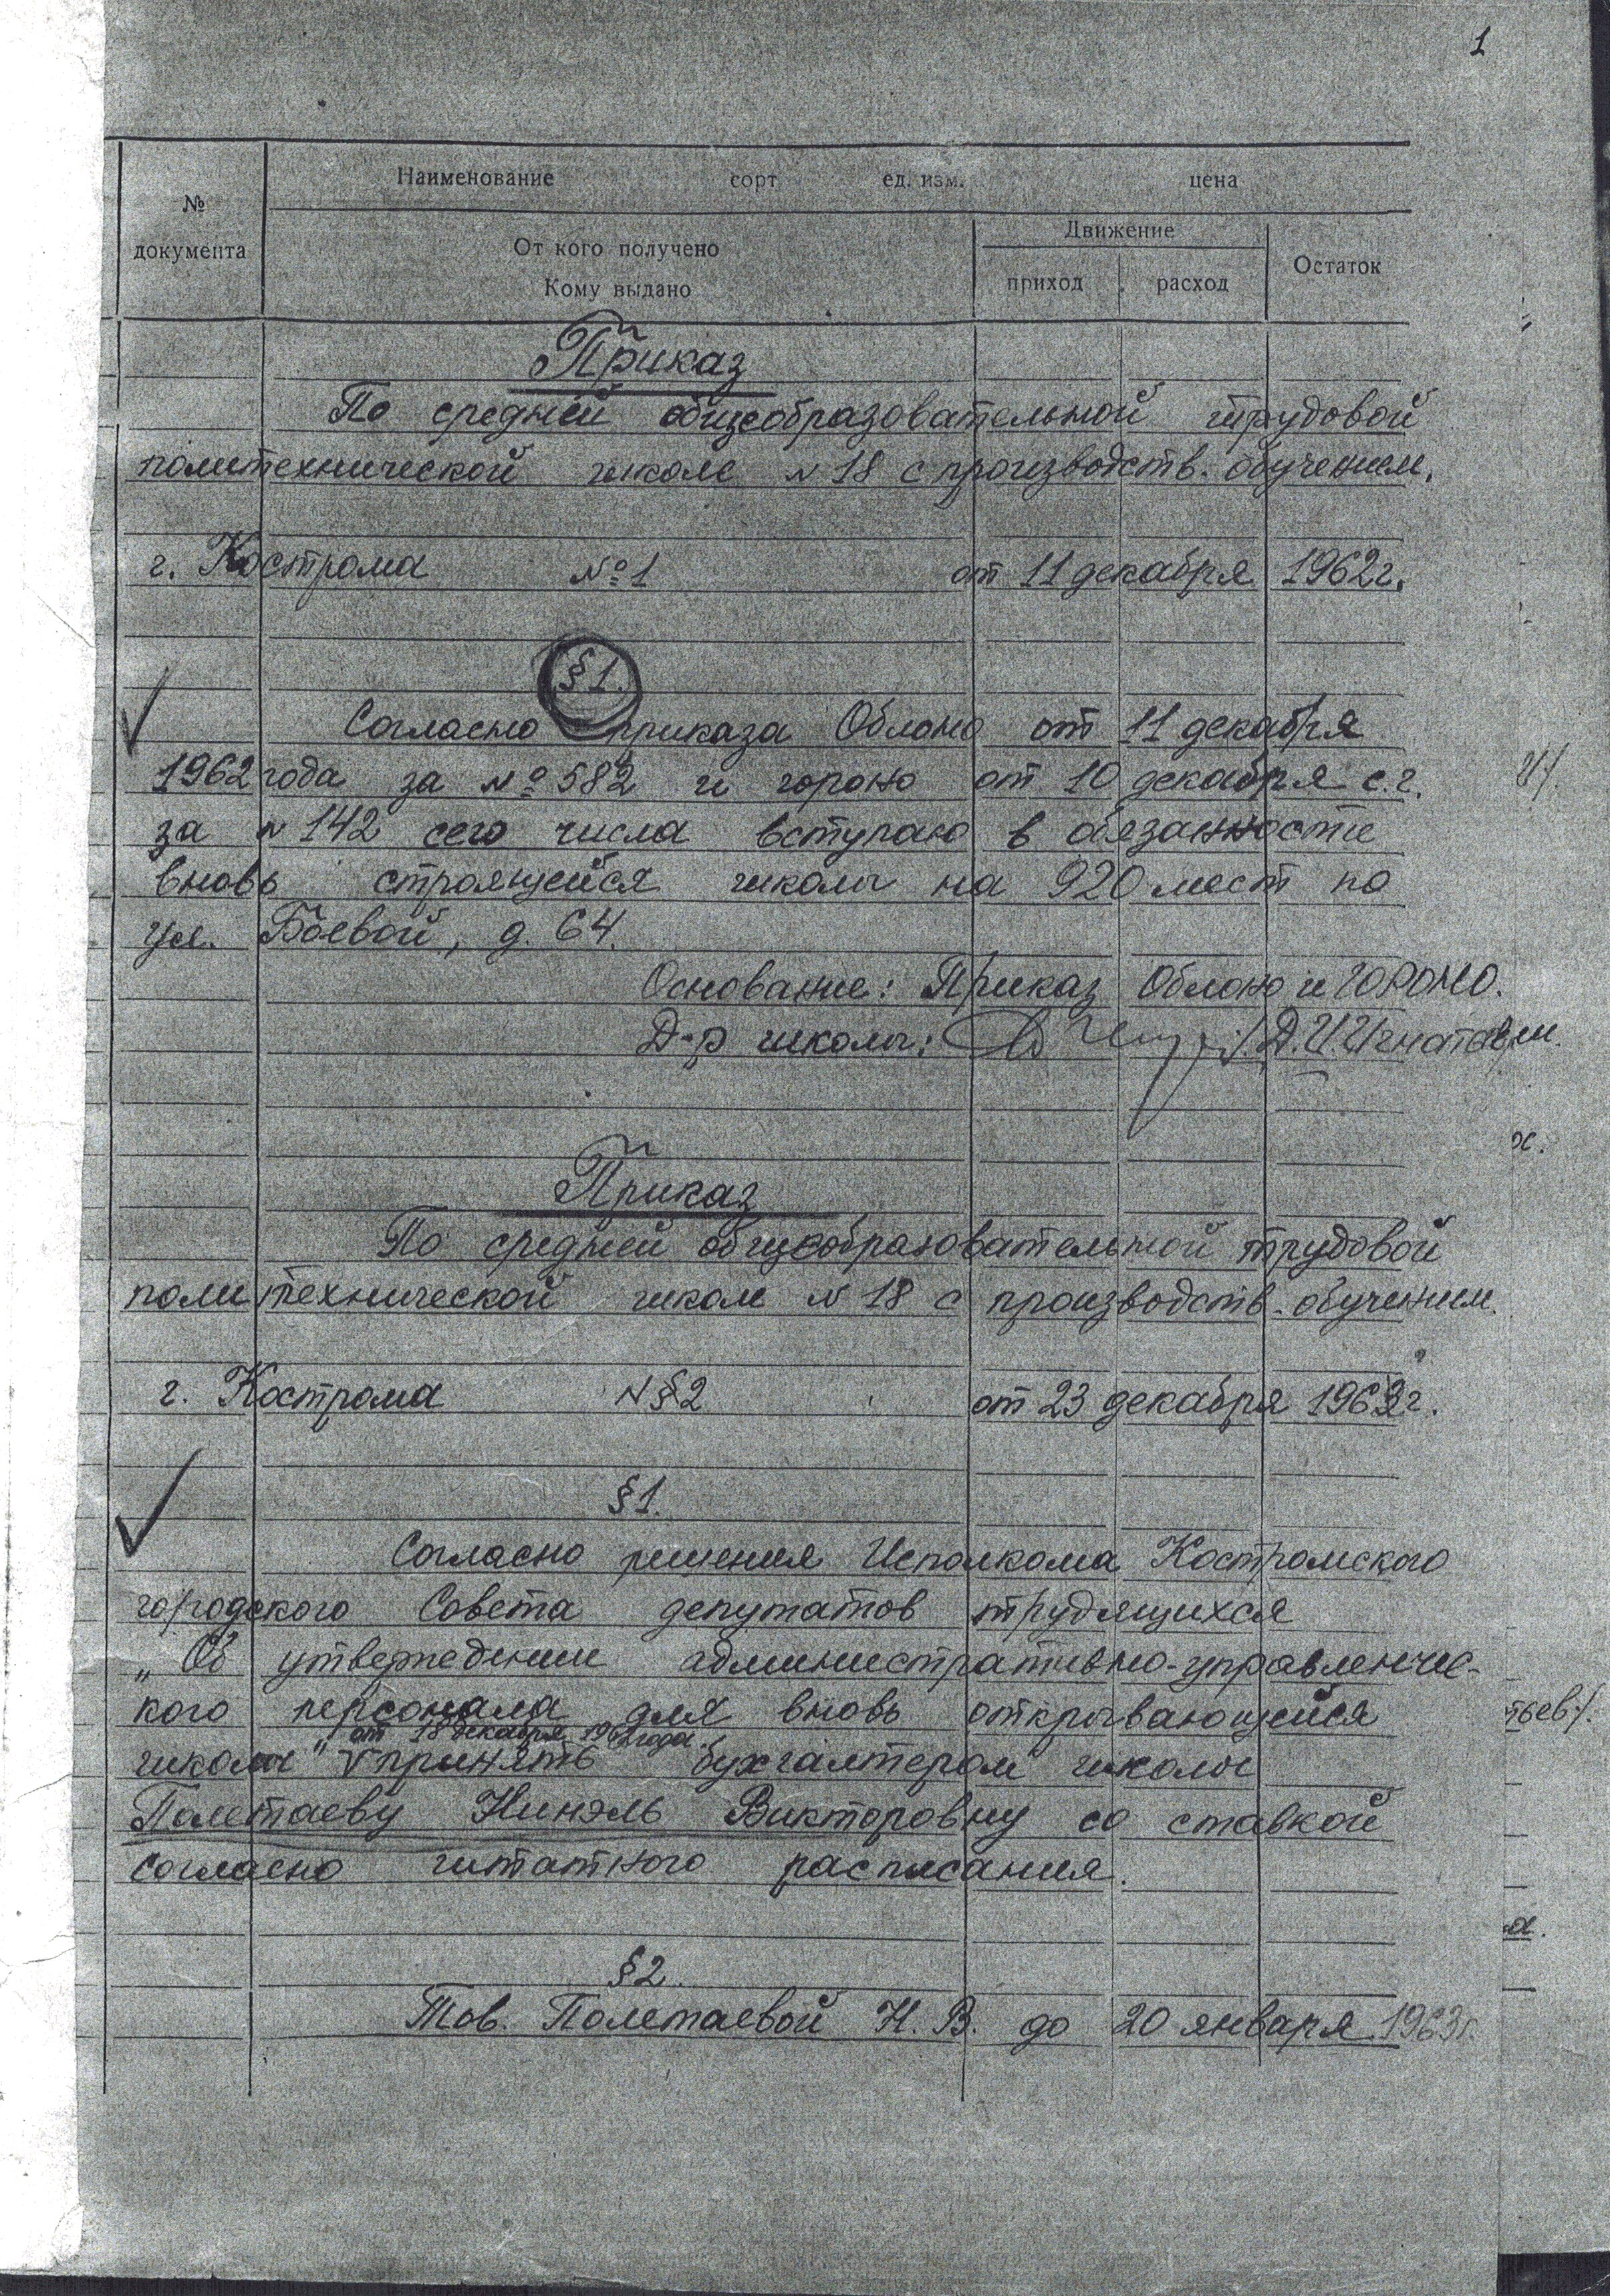 1
Наименование сорт ед. изм. цена
№ документа
От кого получено
Кому выдано
Движение
приход расход
Остаток
Приказ
По средней общеобразовательной трудовой
политехнической школе N 18 с производств. обучением.
г. Кострома №1 от 11 декабря 1962г.
§1.
Согласно приказа Облоно от 11 декабря
1962 года за №582 и гороно от 10 декабря с.г.
за N 142 сего числа вступаю в обязанности
вновь строящейся школы на 920 мест по
ул. Боевой, д. 64.
Основание: Приказ Облоно и ГОРОНО.
Д-р школы: /Д.И.Игнатьев/
Приказ
По средней общеобразовательной трудовой
политехнической школе N 18 с производств. обучением.
г. Кострома N§2 от 23 декабря 1962г.
§1.
Согласно решения Исполкома Костромского
городского Совета депутатов трудящихся
„Об утверждении административно-управленчес-
кого персонала для вновь открывающейся
от 18 декабря 1962 года.
школы" V принять бухгалтером школы
Полетаеву Нинэль Викторовну со ставкой
согласно штатного расписания.
§2.
Тов. Полетаевой Н. В. до 20 января 1963г.